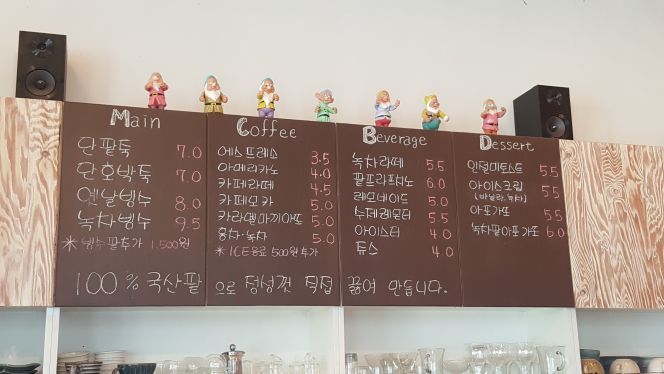 Main
단팥죽 7.0
단호박죽 7.0
옛날빙수 8.0
녹차빙수 9.5
* 빙수팥추가 1.500원
Coffee
에스프레소 3.5
아메리카노 4.0
카페라떼 4.5
카페모카 5.0
카라멜마끼아또 5.0
홍차·녹차 5.0
* ICE음료 500원 추가
Beverage
녹차라떼 5.5
팥프라프치노 6.0
레모네이드 5.0
수제레몬티 5.5
아이스티 4.0
쥬스 4.0
Dessert
인절미토스트 5.5
아이스크림 5.5
(바닐라,녹차)
아포가또 5.5
녹차팥아포가또 6.0
100% 국산팥으로 정성껏 직접 끓여 만듭니다.